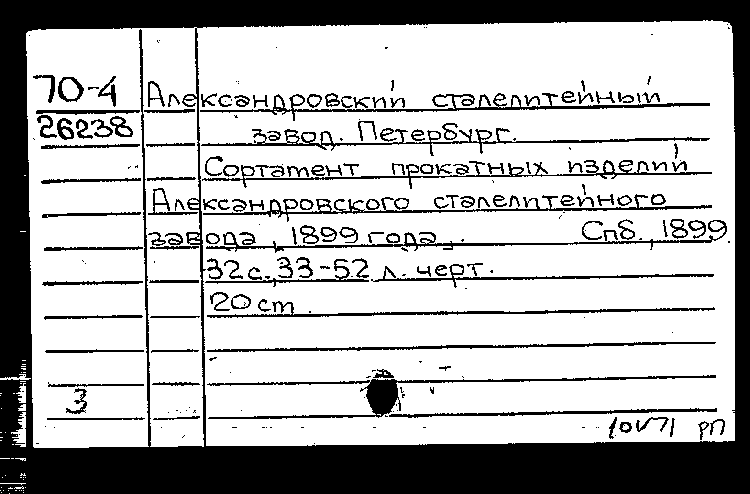 70-4 Александровский сталелитейный
26238 завод. Петербург.
Сортамент прокатных изделий
Александровского сталелитейного
завода, 1899 года,. Спб., 1899
32 с., 33-52 л. черт.
20 cm.
3
10V71 РП